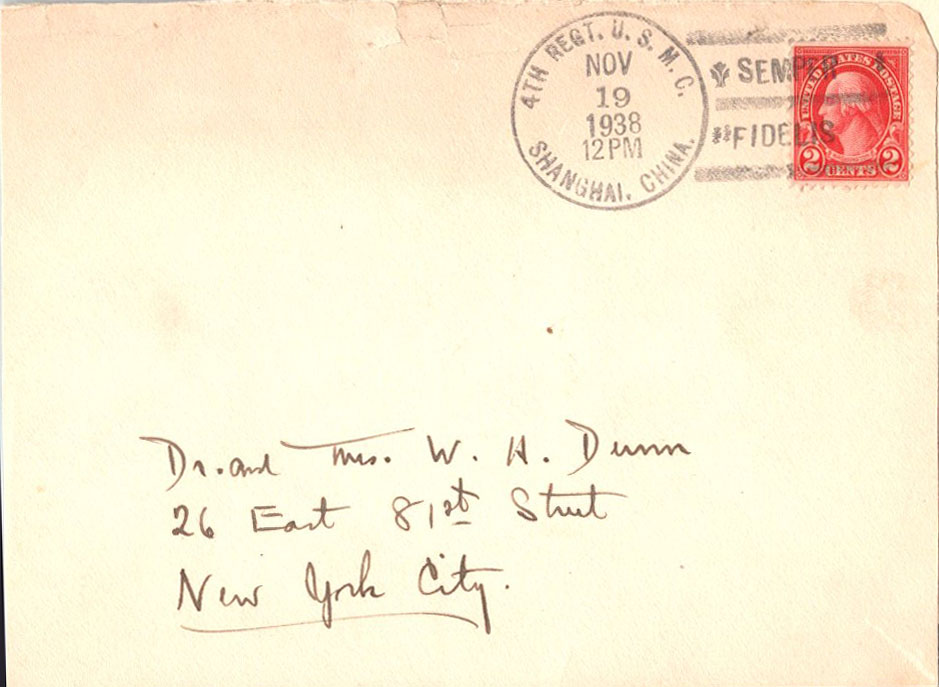 4TH REGT. U. S. M. C.
NOV
19
1938
12PM
SHANGHAI, CHINA.
SEMPER
FIDELIS
UNITED STATES POSTAGE
2 CENTS 2
Dr. and Mrs. W. H. Dunn
26 East 81st Street
New York City.